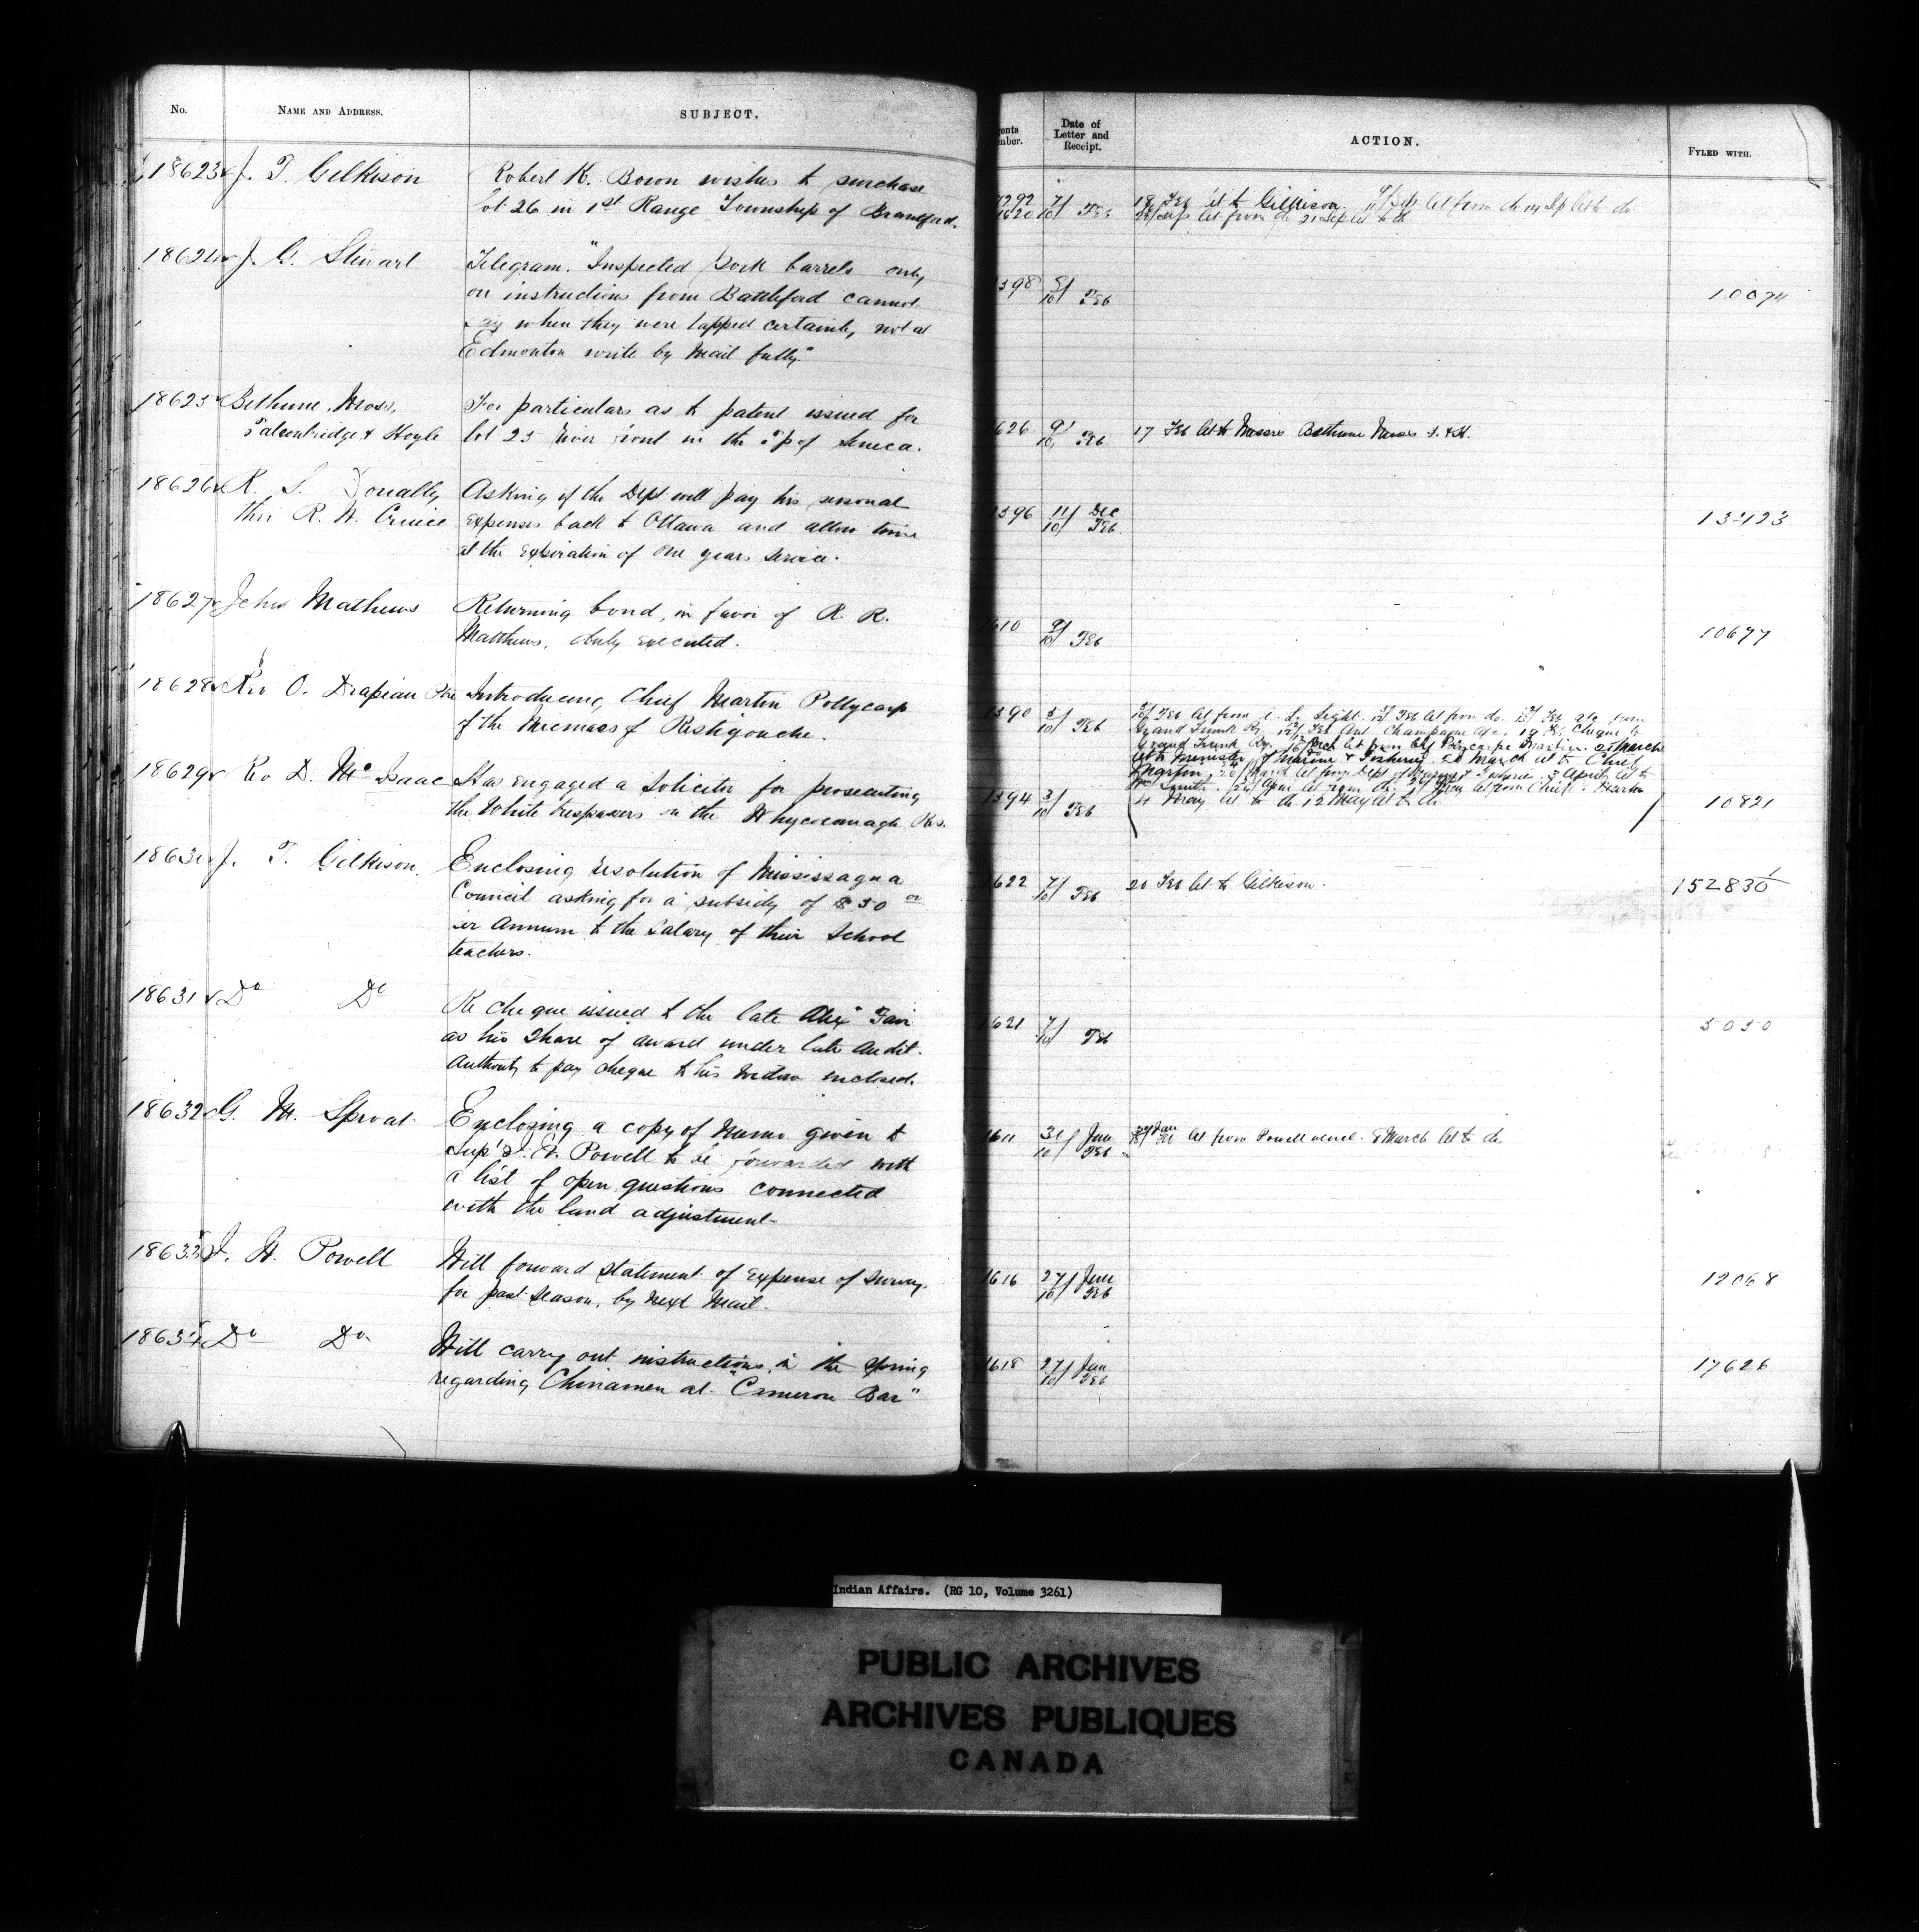 No.
NAME AND ADDRESS.
SUBJECT.
18623 J. T. Gilkison
Robert K. Bown wishes to purchase
lot 26 in 1st Range Township of Brantford.
18624 J. G. Stewart
Telegram. "Inspected pork barrels only
on instructions from Battleford cannot
say when they were tapped certainly not at
Edmonton write by Mail fully"
18625 Bethune, Moss,
Falconbridge & Hoyle
For particulars as to patent issued for
lot 25 River front in the Tp of Seneca.
18626 R. S. Donally
thro R. H. Cruice
Asking if the Dept will pay his personal
expenses back to Ottawa and allow time
at the expiration of one years service.
18627 John Mathews
Returning bond, in favor of R. R.
Matthews, duly executed.
18628 Rev O. Drapeau
Introducing Chief Martin Pollycarp
of the Micmacs of Restigouche.
18629 Rev D. McIsaac
Has engaged a Solicitor for prosecuting
the White trespassers on the Whycocomagh Res.
18630 J. T. Gilkison.
Enclosing resolution of Mississagua
Council asking for a subsidy of $50
per Annum to the Salary of their School
teachers.
18631 Do Do
Re cheque issued to the late Alex Fair
as his Share of award under late Audit.
Authority to pay cheque to his widow enclosed.
18632 G. M. Sproat
Enclosing a copy of Memo. given to
Supt I. W. Powell to be forwarded with
a list of open questions connected
with the land adjustment
18633 I. W. Powell
Will forward statement of expense of Survey
for past Season, by next Mail.
18634 Do Do
Will carry out instructions in the Spring
regarding Chinamen at "Cameron Bar"
ents
mber.
Date of
Letter and
Receipt.
ACTION.
FYLED WITH.
7/10 Feb
18 Feb let to Gilkison. 9/ Sep let from do 14 Sep let to do
Sep let from do 21 Sep let to do
1598 5/10 Feb 10674
1626 9/10 Feb 17 Feb let to Messrs Bethune Moss F. & H.
1596 11/10 Dec Feb
1610 9/10 Feb 10677
1590 5/10 Feb
Grand Trunk Ry.
4 May let to do 12 May let to do
1594 3/10 Feb 10821
1622 7/10 Feb 20 Feb let to Gilkison. 152830
1621 7/10 Feb 5050
1611 31/10 Jan Feb
let from Powell 8 March let to do
1616 27/10 Jan Feb 12068
1618 27/10 Jan Feb 17626
Indian Affairs. (RG 10, Volume 3261)
PUBLIC ARCHIVES
ARCHIVES PUBLIQUES
CANADA